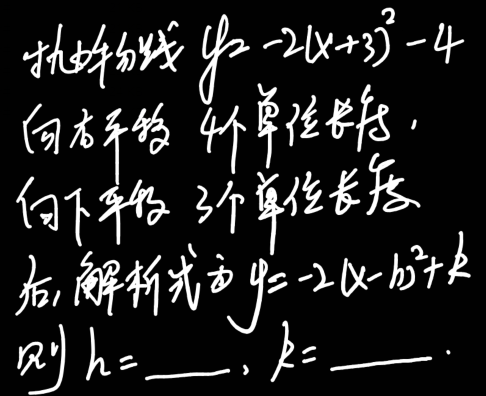 抛物线 y=-2(x+3)²-4
向右平移 4个单位长度,
向下平移 3个单位长度
后,解析式为 y=-2(x-h)²+k
则 h=____, k=_____.